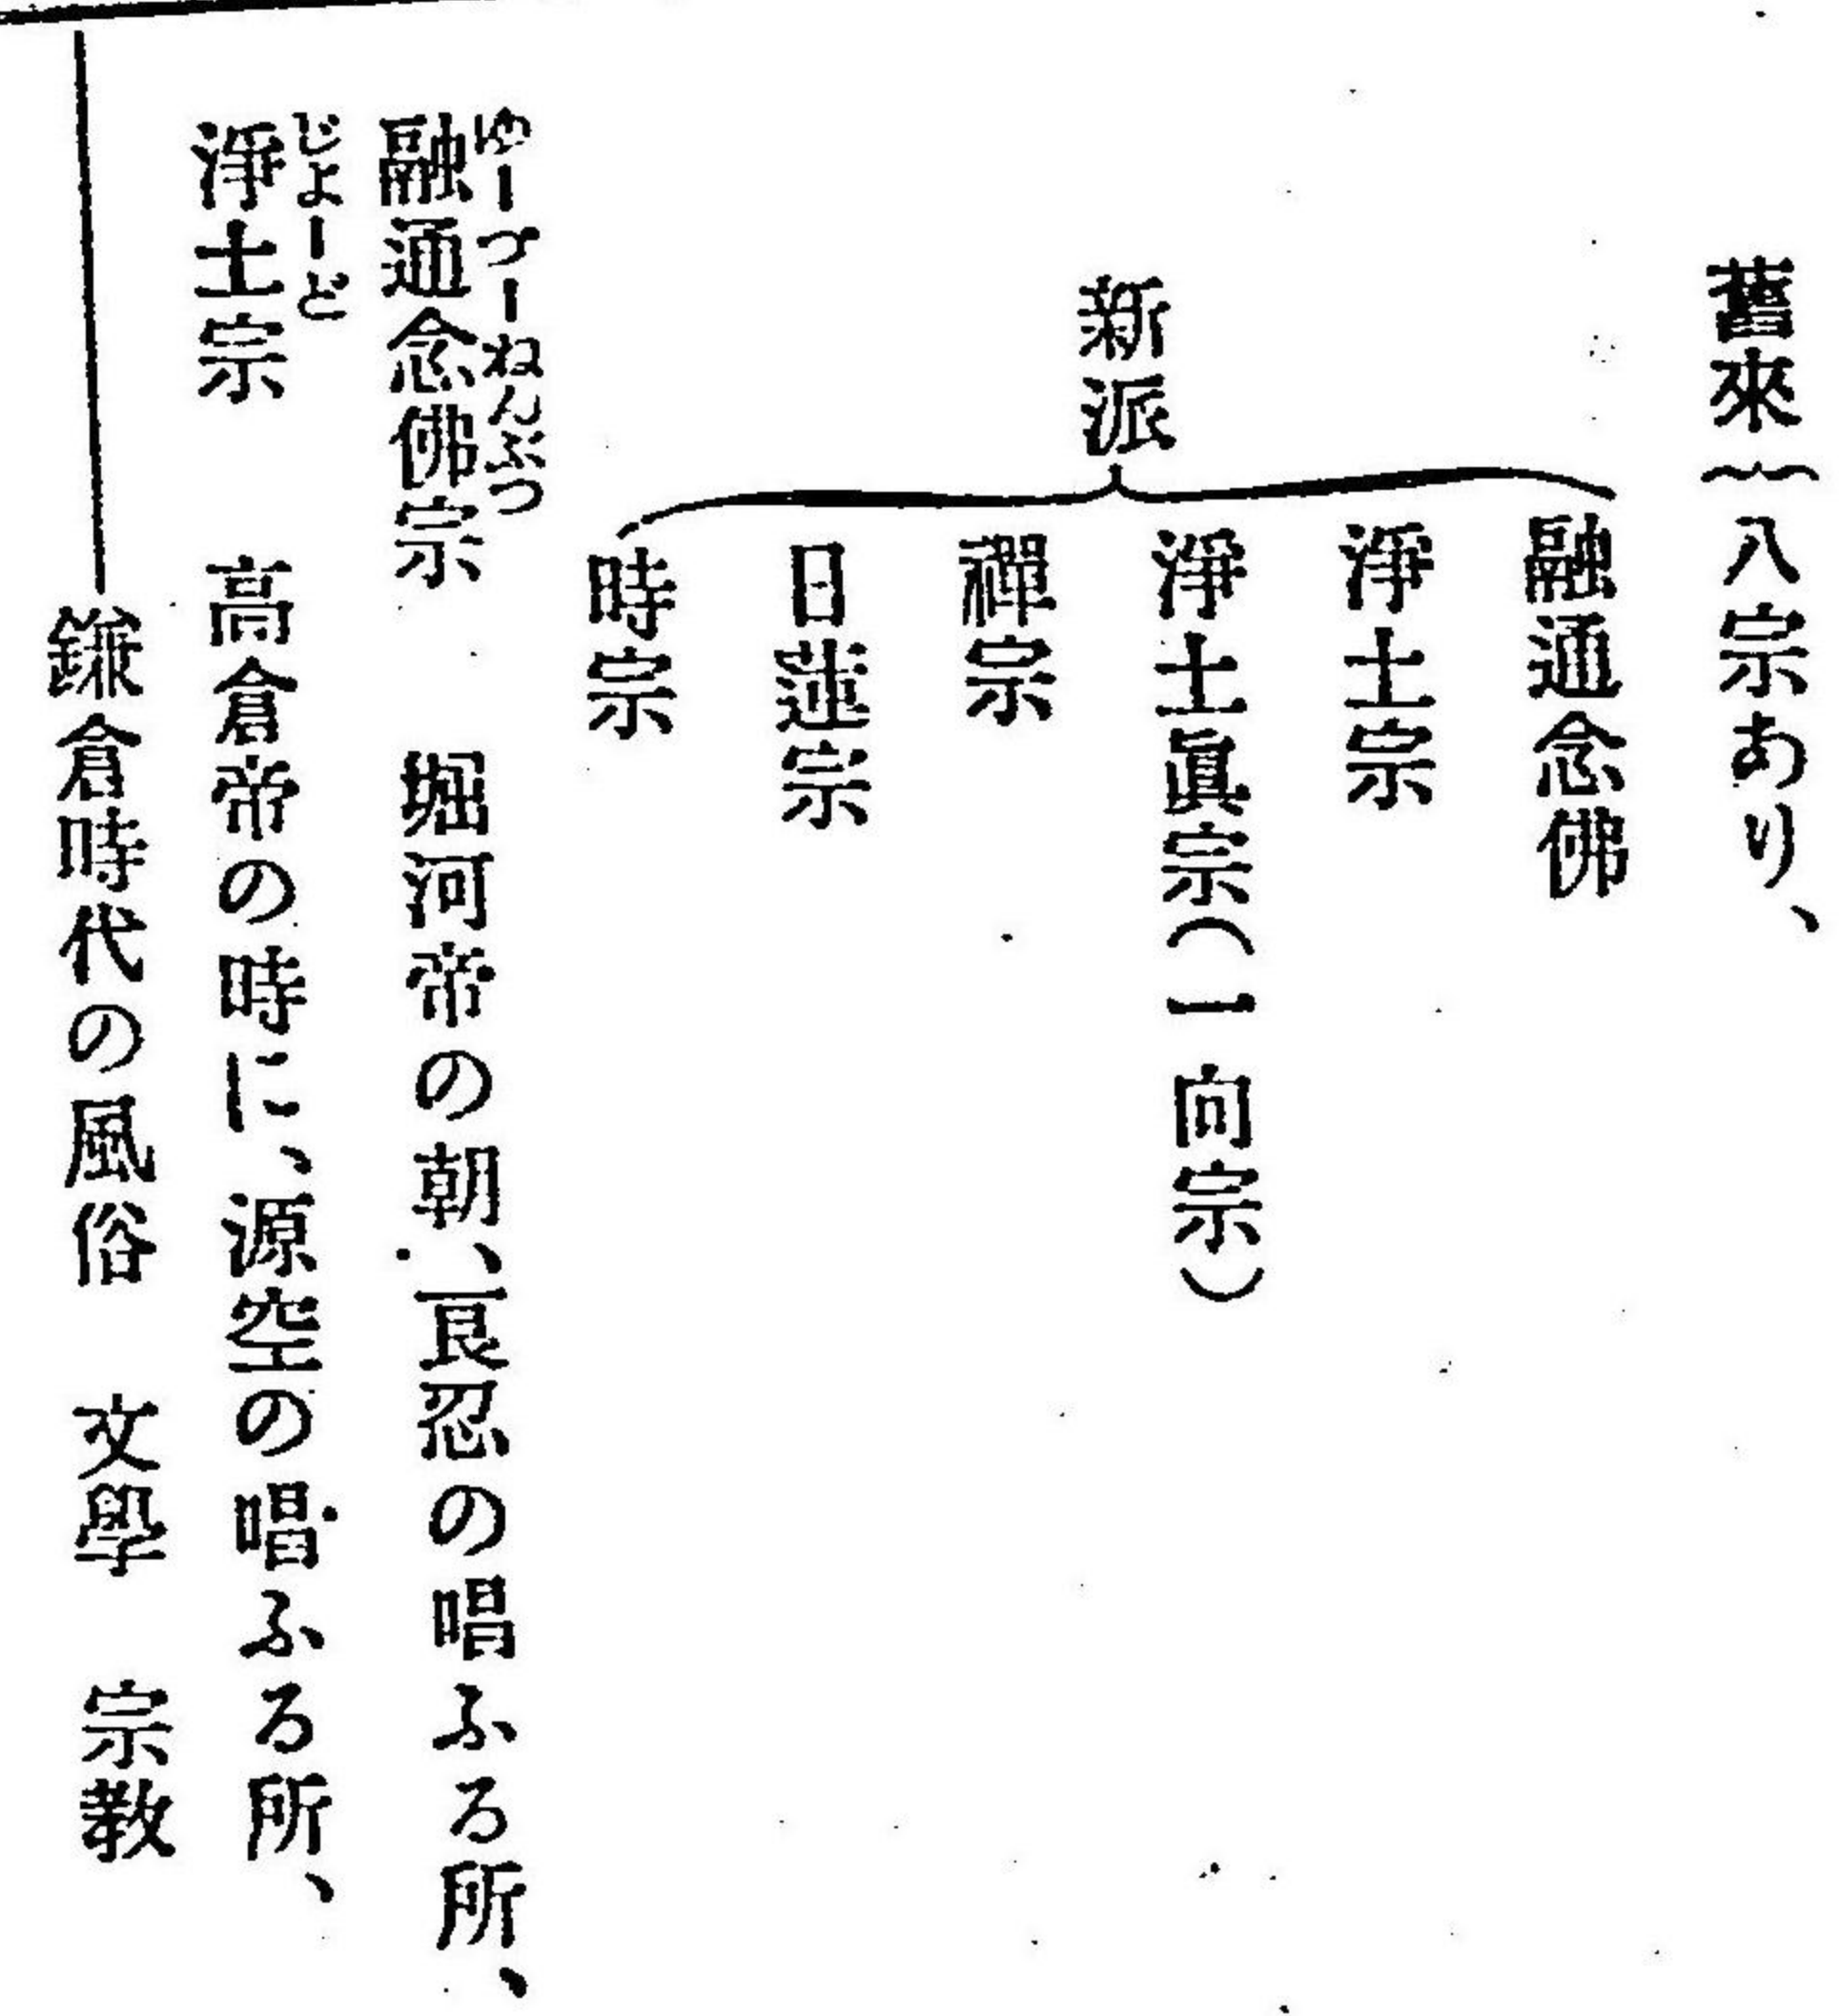 舊來 八宗あり、
新派
融通念佛
淨土宗
淨土眞宗(一向宗)
禪宗
日蓮宗
時宗
ゆーづーねんぶつ
融通念佛宗 堀河帝の朝、良忍の唱ふる所、
じよーど
淨土宗 高倉帝の時に、源空の唱ふる所、
鎌倉時代の風俗 文學 宗教